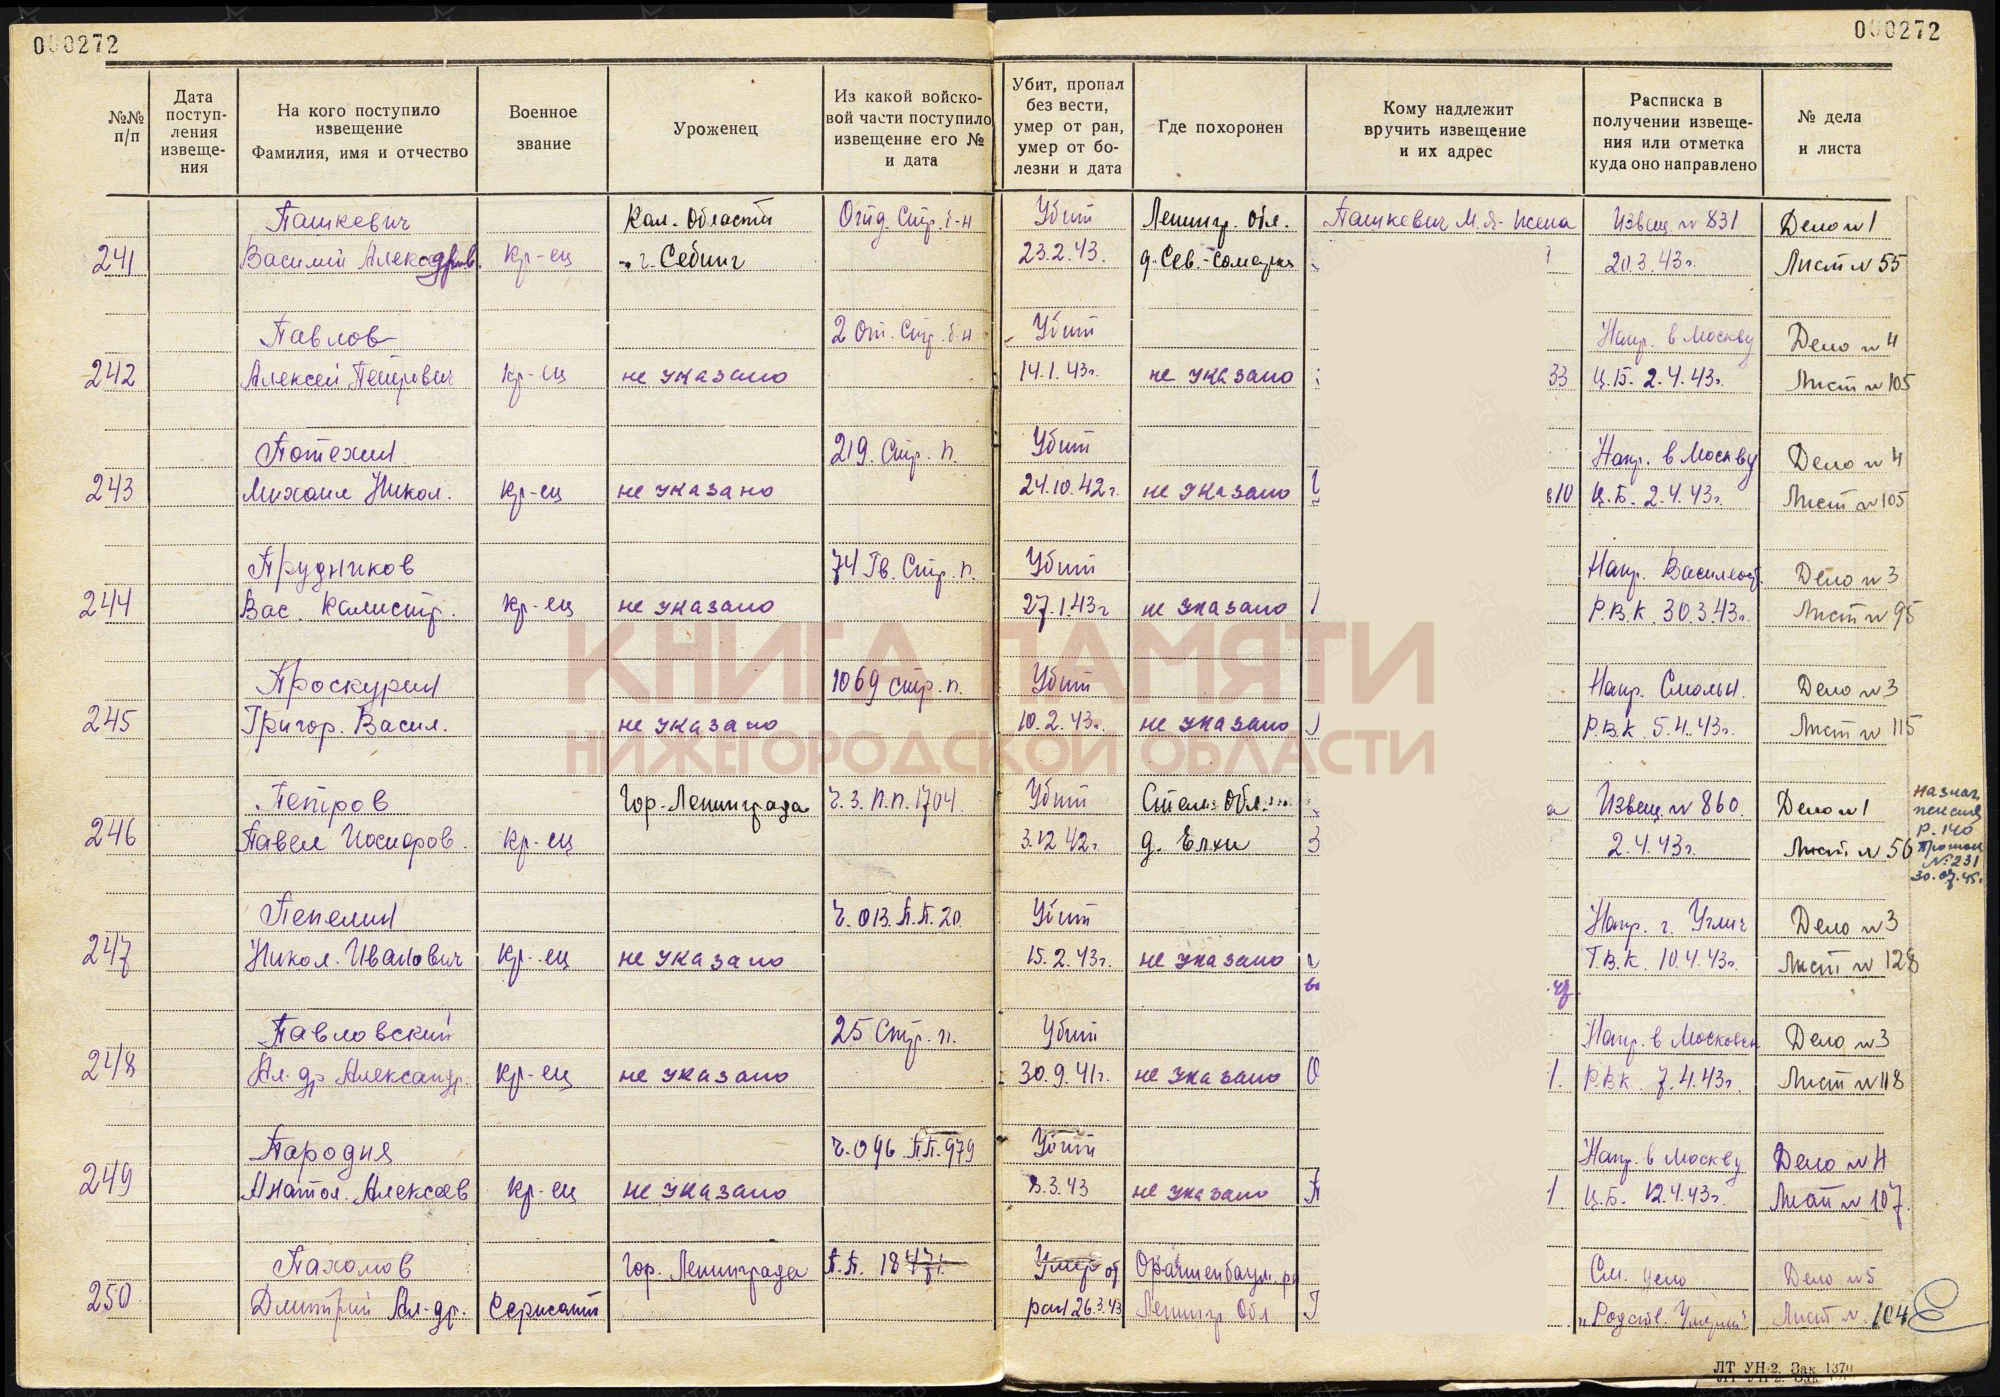 000272
000272
№№ п/п
Дата поступ-ления извеще-ния
На кого поступило извещение
Фамилия, имя и отчество
Военное звание
Уроженец
Из какой войско-вой части поступило извещение его № и дата
Убит, пропал без вести, умер от ран, умер от бо-лезни и дата
Где похоронен
Кому надлежит вручить извещение и их адрес
Расписка в получении извеще-ния или отметка куда оно направлено
№ дела и листа
Пашкевич Кал. Области Отд. Стр. б-н Убит Ленингр. обл. Пашкевич М.Я- жена Извещ. № 831 Дело № 1
241 Василий Кр-ец г. Себниг 23.2.43. д. Сев. 20.3.43г. Лист № 55
Павлов 2 От. Стр. б-н Убит Напр. в Москву Дело № 4
242 Алексей Петрович Кр-ец не указано 14.1.43г. не указано 33 Ц.Б. 2.4.43г. Лист № 105
Потехин 219. Стр. п. Убит Напр. в Москву Дело № 4
243 Михаил Никол. Кр-ец не указано 24.10.42г. не указано 10 Ц.Б. 2.4.43г. Лист № 105
Прудников 74 Гв. Стр. п. Убит Напр. Дело № 3
244 Вас. Калистр. Кр-ец не указано 27.1.43г не указано Р.В.К. 30.3.43г. Лист № 95
Проскурин 1069 стр. п. Убит Напр. Смольн. Дело № 3
245 Григор. Васил. не указано 10.2.43г. не указано Р.В.К. 5.4.43г. Лист № 115
Петров Гор. Ленинграда Ч. 3. П.П. 1704 Убит Обл. Извещ. № 860. Дело № 1
246 Павел Кр-ец 3.12.42г. д. Елхи З 2.4.43г. Лист № 56
Назнач. пенсия р. 140
№ 231
30.07.45.
Пепелин Ч. 013. П.П. 20 Убит Напр. г. Углич Дело № 3
247 Никол. Иванович Кр-ец не указано 15.2.43г. не указано Г.В.К. 10.4.43г. Лист № 128
Павловский 25 Стр. п. Убит Напр. в Московск Дело № 3
248 Ал-др Александр. Кр-ец не указано 30.9.41г. не указано О 1. Р.В.К. 7.4.43г. Лист № 118
Пародня Ч. 096. П.П. 979 Убит Напр. в Москву Дело № 4
249 Анатол. Алексеев Кр-ец не указано 8.3.43 не указано П 1 Ц.Б. 12.4.43г. Лист № 107.
Пахомов Гор. Ленинграда П.П. 18471. Умер от Ораниенбаум. р. См. дело Дело № 5
250 Дмитрий Ал-др. Сержант ран 26.3.43 Ленингр Обл Г „Родств. Лист № 104
КНИГА ПАМЯТИ
НИЖЕГОРОДСКОЙ ОБЛАСТИ
ЛТ УН-2. Зак 1370